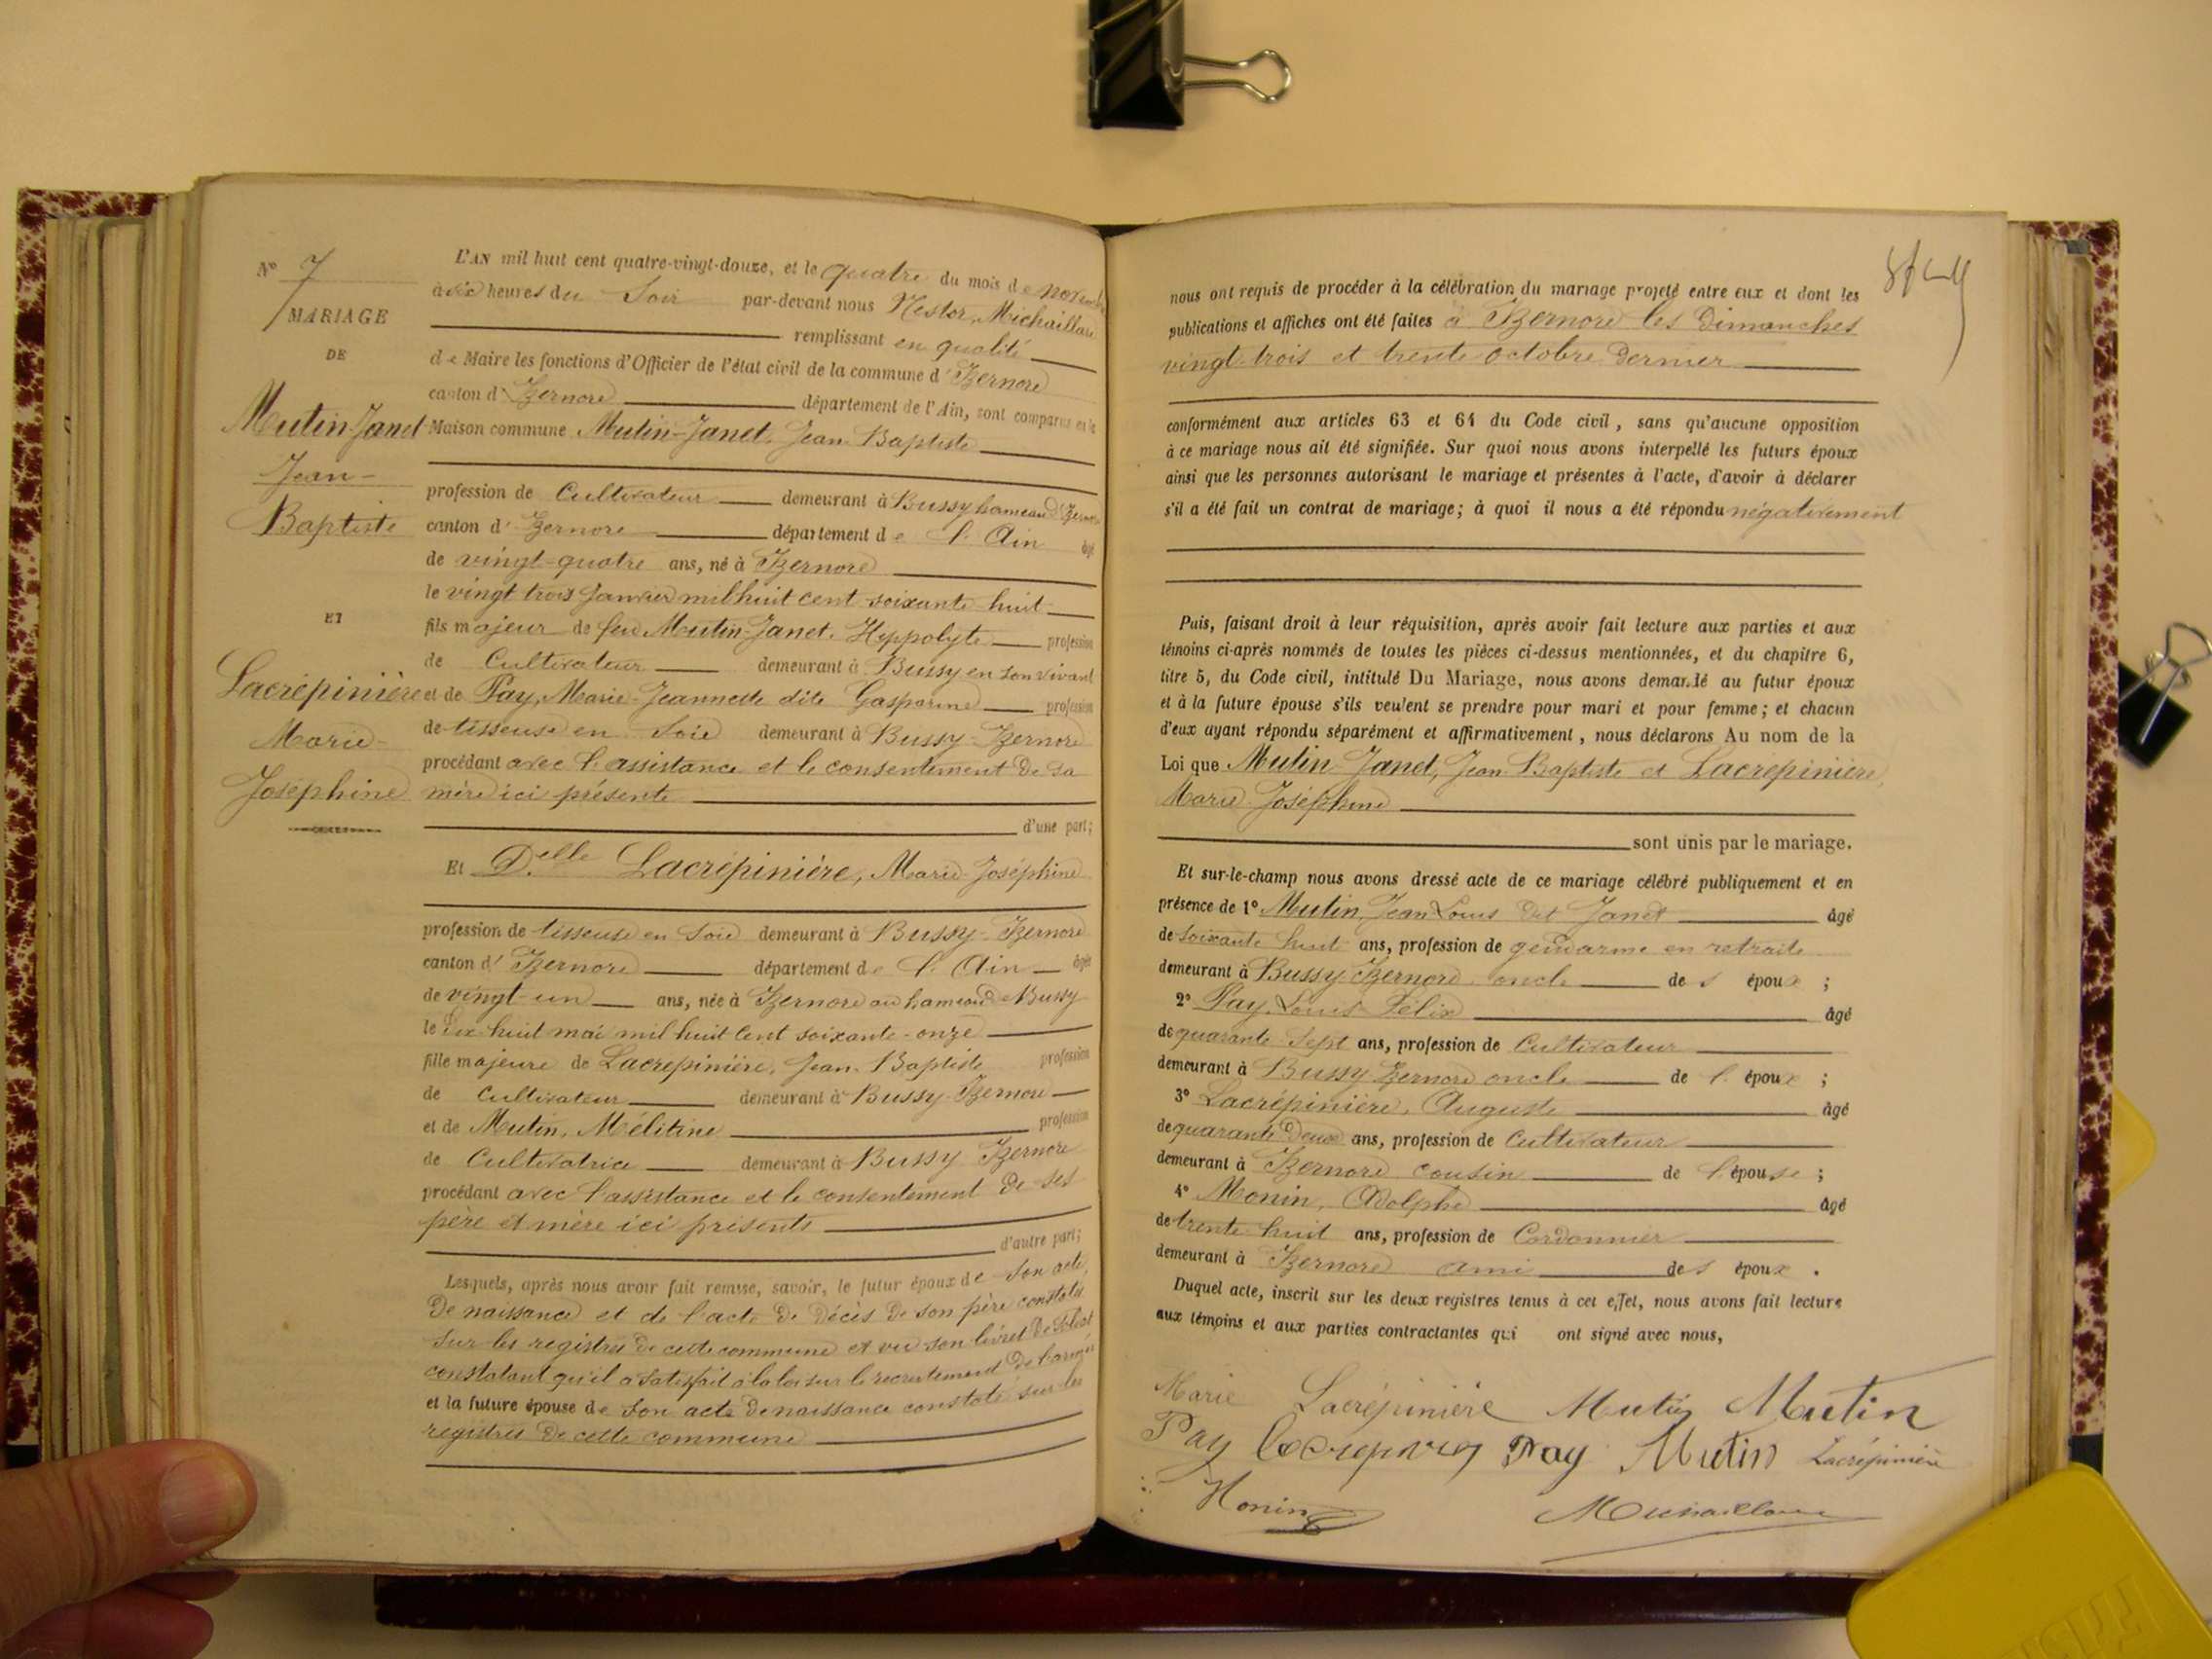 N° 7
MARIAGE
DE
Mutin-Janet
Jean-
Baptiste
ET
Lacrépinière
Marie-
Joséphine
L'AN mil huit cent quatre-vingt-douze, et le quatre du mois de novembre
à six heures du Soir par-devant nous Nestor, Michaillard
remplissant en qualité
de Maire les fonctions d'Officier de l'état civil de la commune d'Izernore
canton d'Izernore département de l'Ain, sont comparus en la
Maison commune Mutin-Janet, Jean Baptiste
profession de Cultivateur demeurant à Bussy hameau d'Izernore
canton d'Izernore département de l'Ain âgé
de vingt-quatre ans, né à Izernore
le vingt trois Janvier mil huit cent soixante-huit
fils majeur de feu Mutin-Janet, Hyppolyte profession
de Cultivateur demeurant à Bussy en son vivant
et de Pay, Marie-Jeannette dite Gasparine profession
de tisseuse en Soie demeurant à Bussy-Izernore
procédant avec l'assistance et le consentement de sa
mère ici présente
d'une part;
Et Delle Lacrépinière, Marie Joséphine
profession de tisseuse en Soie demeurant à Bussy-Izernore
canton d'Izernore département de l'Ain âgée
de vingt-un ans, née à Izernore au hameau de Bussy
le dix huit mai mil huit cent soixante-onze
fille majeure de Lacrépinière, Jean-Baptiste profession
de Cultivateur demeurant à Bussy-Izernore
et de Mutin, Mélitine profession
de Cultivatrice demeurant à Bussy Izernore
procédant avec l'assistance et le consentement de ses
père et mère ici présents
d'autre part;
Lesquels, après nous avoir fait remise, savoir, le futur époux de son acte
de naissance et de l'acte de décès de son père constatés
sur les registres de cette commune et vu son livret de soldat
constatant qu'il a satisfait à la loi sur le recrutement de l'armée
et la future épouse de son acte de naissance constaté sur les
registres de cette commune
nous ont requis de procéder à la célébration du mariage projeté entre eux et dont les
publications et affiches ont été faites à Izernore les Dimanches
vingt-trois et trente octobre dernier
conformément aux articles 63 et 64 du Code civil, sans qu'aucune opposition
à ce mariage nous ait été signifiée. Sur quoi nous avons interpellé les futurs époux
ainsi que les personnes autorisant le mariage et présentes à l'acte, d'avoir à déclarer
s'il a été fait un contrat de mariage; à quoi il nous a été répondu négativement
Puis, faisant droit à leur réquisition, après avoir fait lecture aux parties et aux
témoins ci-après nommés de toutes les pièces ci-dessus mentionnées, et du chapitre 6,
titre 5, du Code civil, intitulé Du Mariage, nous avons demandé au futur époux
et à la future épouse s'ils veulent se prendre pour mari et pour femme; et chacun
d'eux ayant répondu séparément et affirmativement, nous déclarons Au nom de la
Loi que Mutin-Janet, Jean-Baptiste et Lacrépinière,
Marie Joséphine
sont unis par le mariage.
Et sur-le-champ nous avons dressé acte de ce mariage célébré publiquement et en
présence de 1° Mutin, Jean Louis dit Janet âgé
de soixante huit ans, profession de gendarme en retraite
demeurant à Bussy-Izernore oncle des époux;
2° Pay, Louis-Félix âgé
de quarante Sept ans, profession de Cultivateur
demeurant à Bussy Izernore oncle de l'époux;
3° Lacrépinière, Auguste âgé
de quarante deux ans, profession de Cultivateur
demeurant à Izernore cousin de l'épouse;
4° Monin, Adolphe âgé
de trente-huit ans, profession de Cordonnier
demeurant à Izernore ami des époux.
Duquel acte, inscrit sur les deux registres tenus à cet effet, nous avons fait lecture
aux témoins et aux parties contractantes qui ont signé avec nous,
Marie Lacrépinière Mutin Mutin
Pay Pay Mutin Lacrépinière
Monin Michaillard